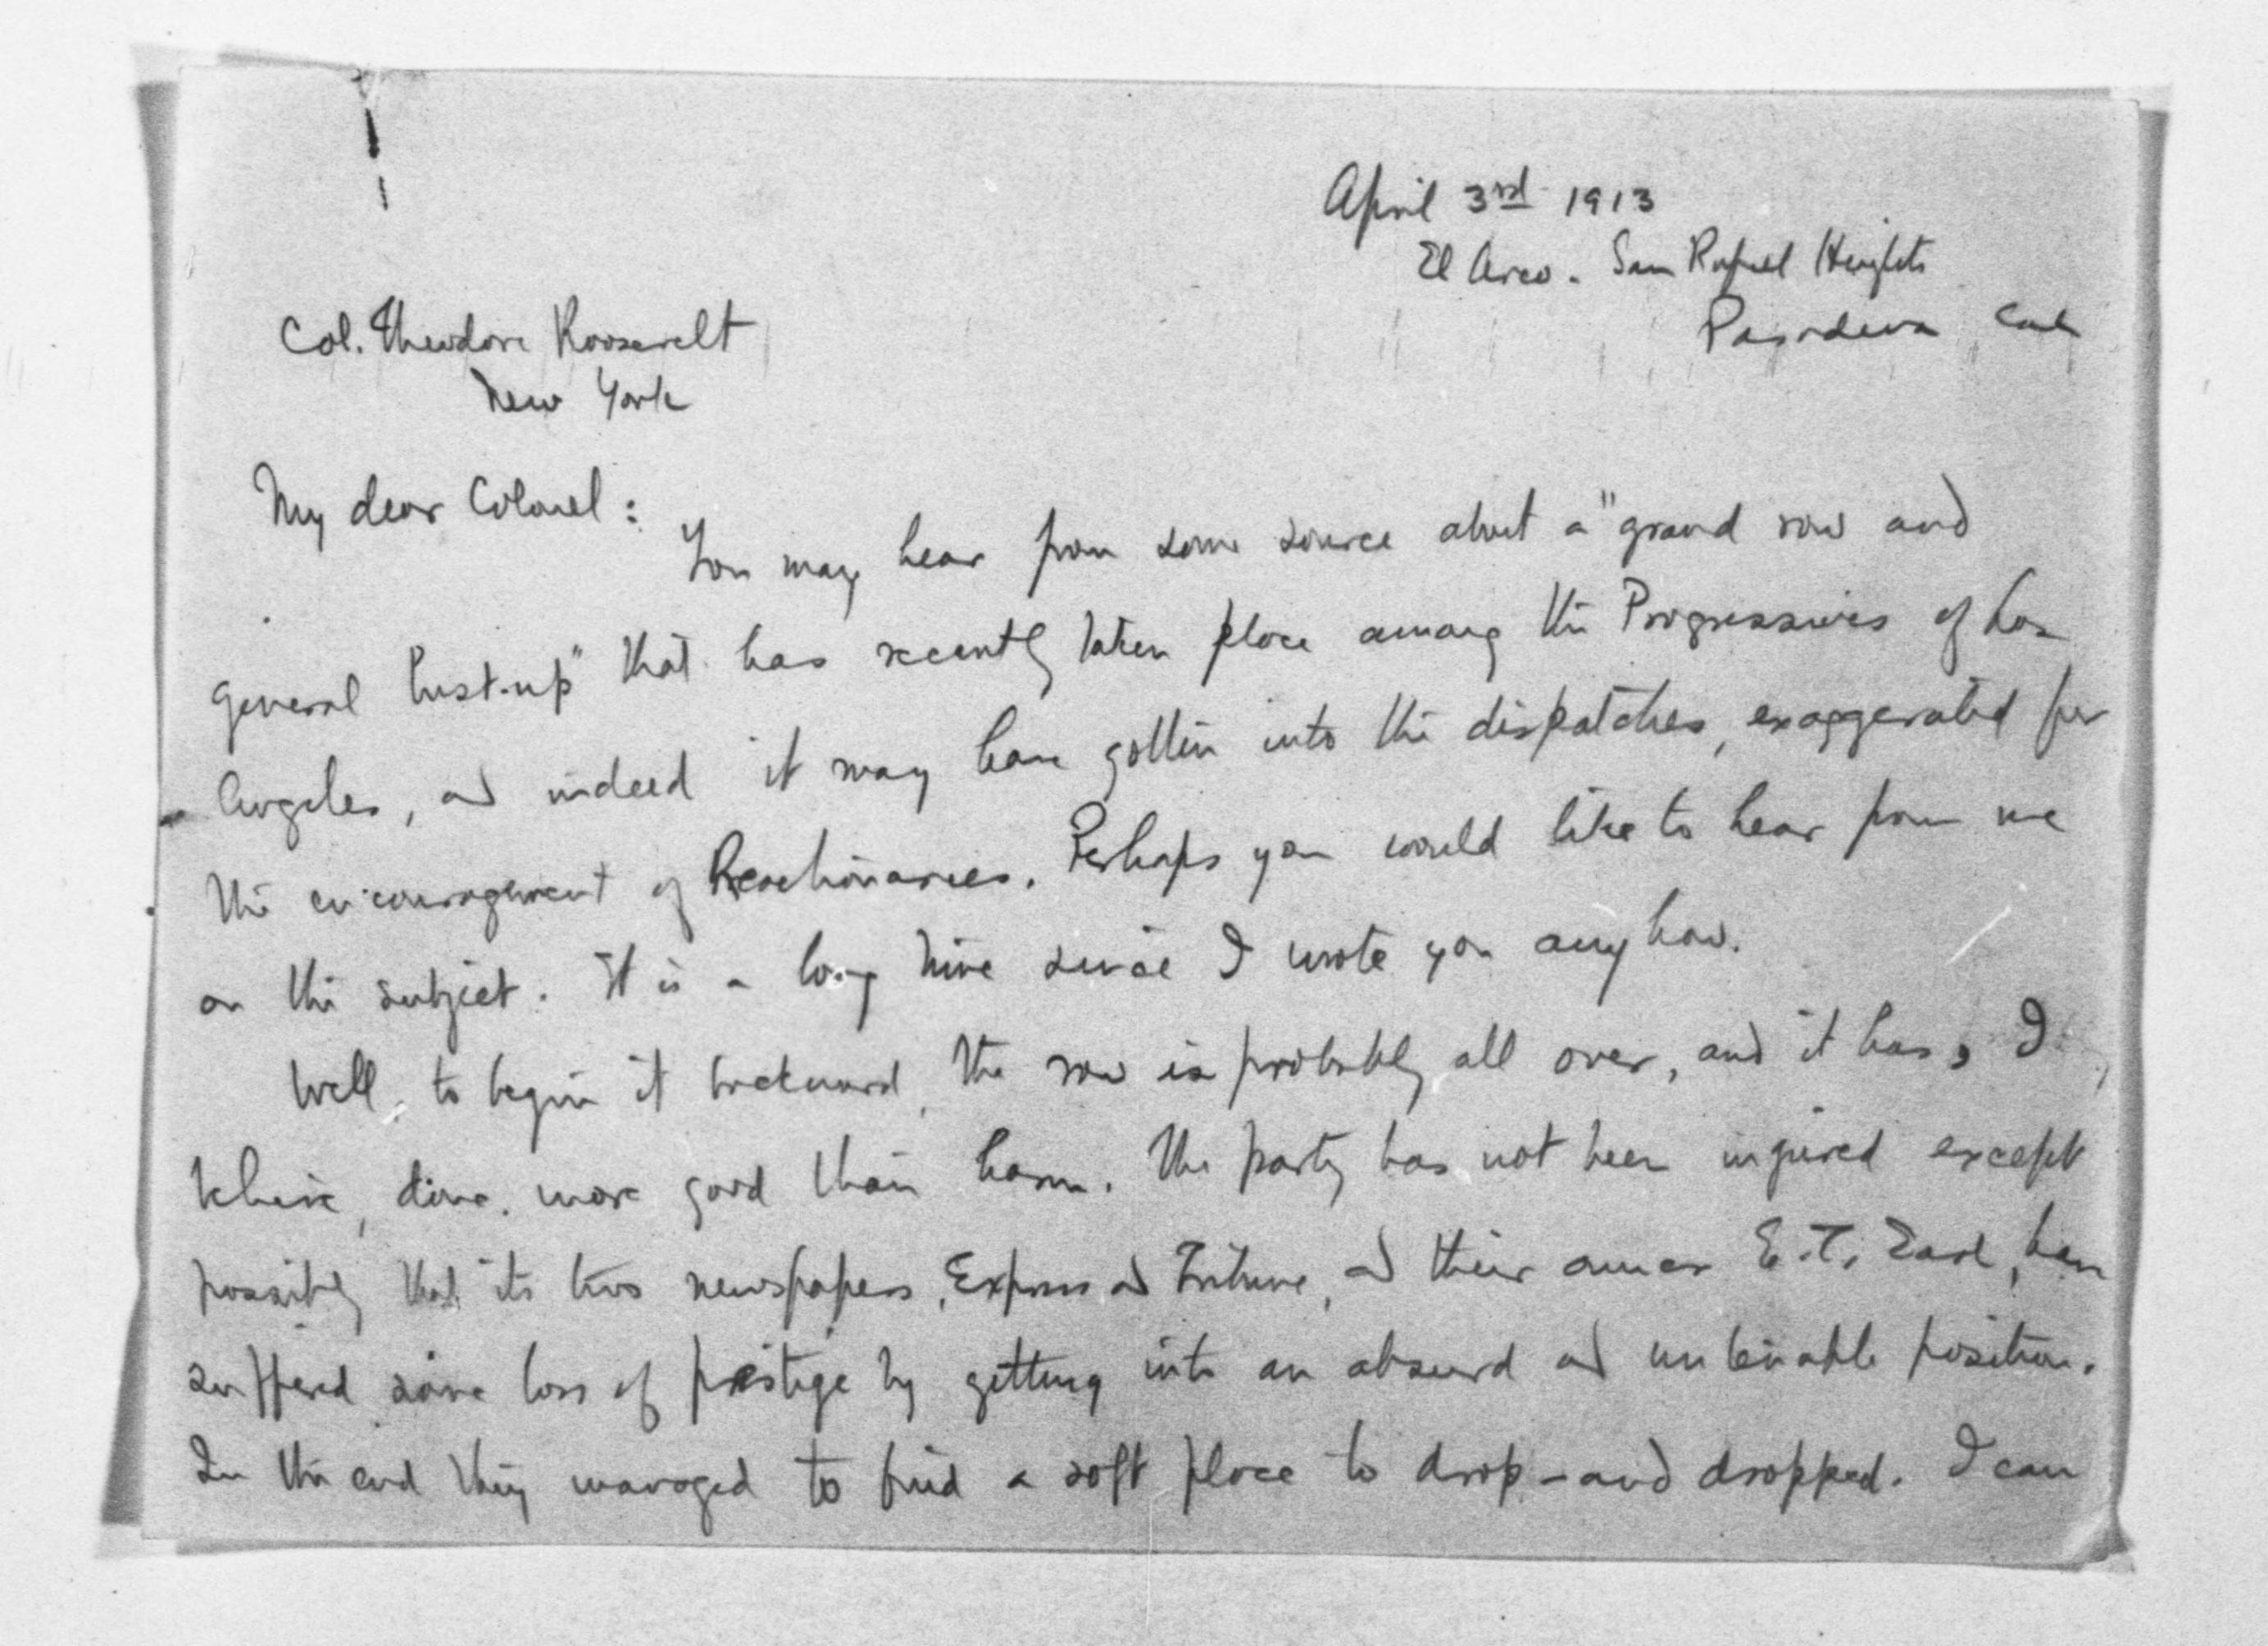 April 3rd 1913
El Arco. San Rafael Heights
Pasadena Cal
Col. Theodore Roosevelt
New York
My dear Colonel:
You may hear from some source about a "grand row and
general bust-up" that has recently taken place among the Progressives of Los
Angeles, and indeed it may have gotten into the dispatches, exaggerated for
the encouragement of Reactionaries. Perhaps you would like to hear from me
on the subject. It is a long time since I wrote you anyhow.
Well, to begin it backward, the row is probably all over, and it has, I
think, done more good than harm. The party has not been injured except
possibly that its two newspapers, Express and Tribune, and their owner E.T. Earl, have
suffered some loss of prestige by getting into an absurd and untenable position.
In the end they managed to find a soft place to drop - and dropped. I can